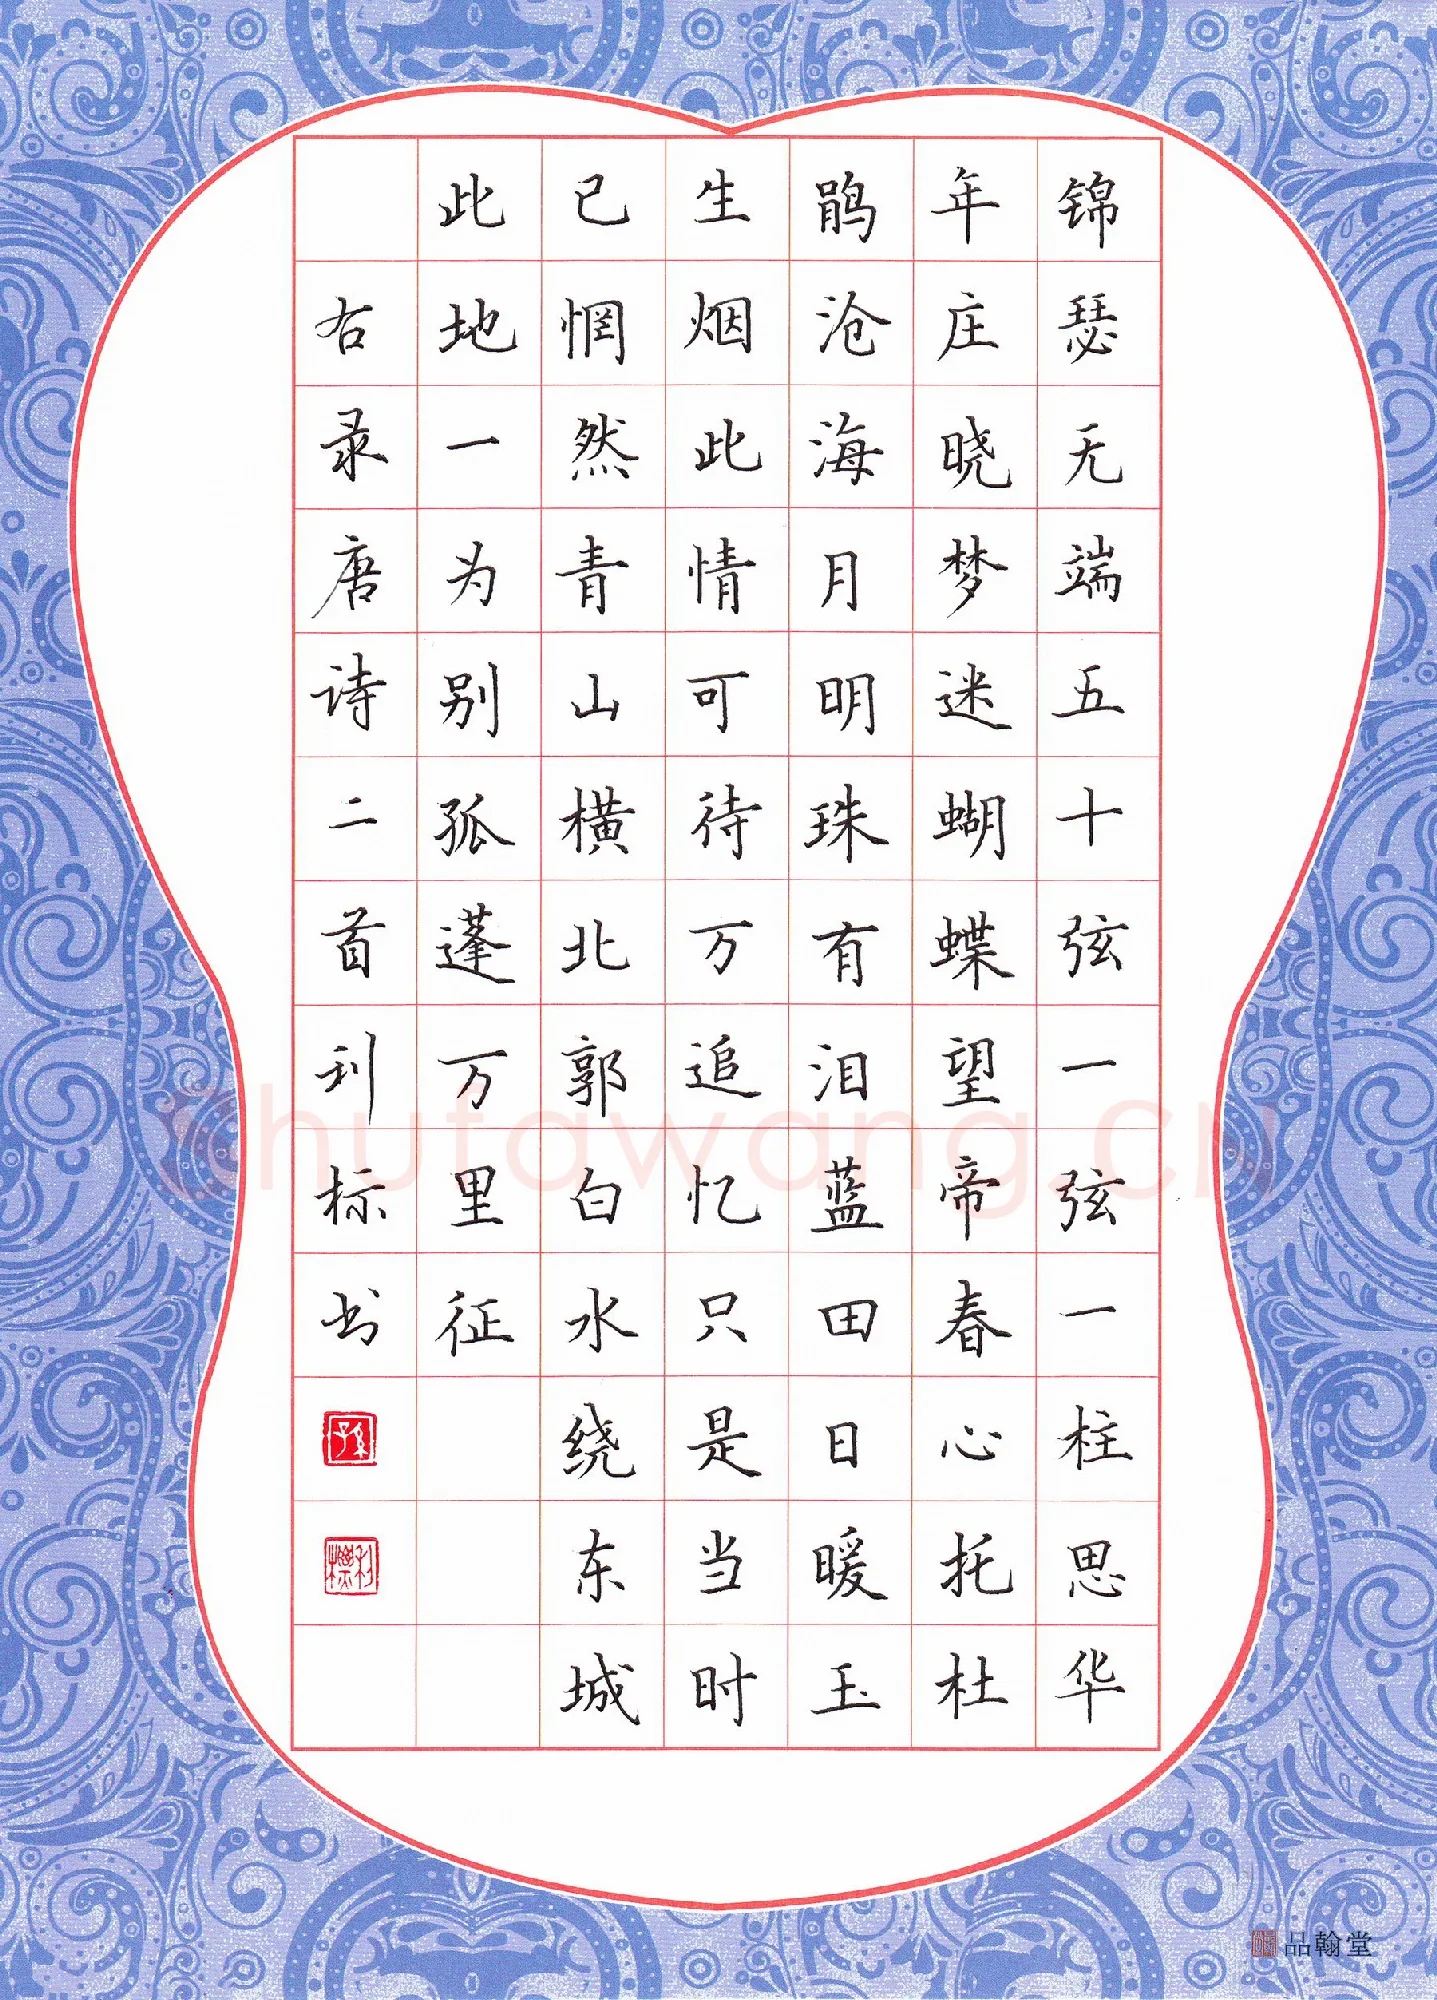 锦瑟无端五十弦一弦一柱思华
年庄晓梦迷蝴蝶望帝春心托杜
鹃沧海月明珠有泪蓝田日暖玉
生烟此情可待万追忆只是当时
已惘然青山横北郭白水绕东城
此地一为别孤蓬万里征
右录唐诗二首利标书
孙
利标
shufawang.CN
品翰堂